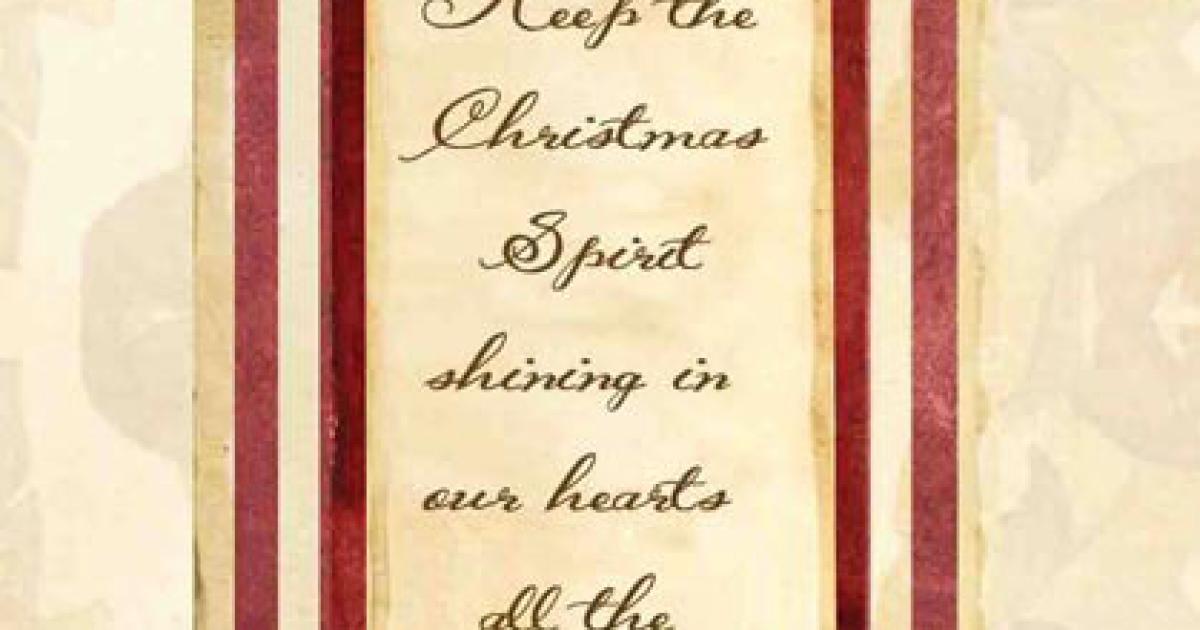 Keep the
Christmas
Spirit
shining in
our hearts
all the